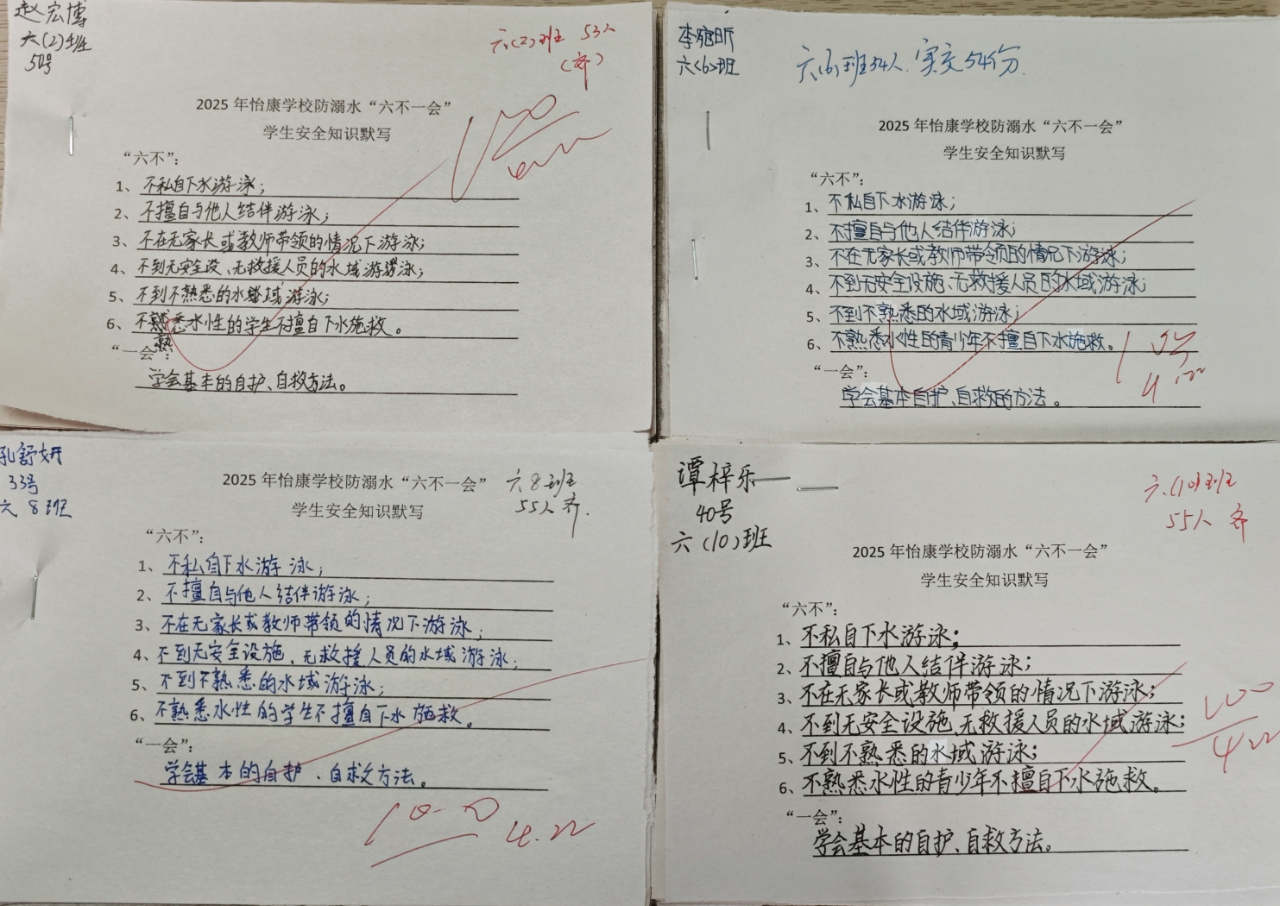 赵宏博
六(2)班
50号
六(2)班 53人
(齐)
2025年怡康学校防溺水“六不一会”
学生安全知识默写
“六不”：
1、不私自下水游泳；
2、不擅自与他人结伴游泳；
3、不在无家长或教师带领的情况下游泳；
4、不到无安全设、无救援人员的水域游泳；
5、不到不熟悉的水域游泳；
6、不熟悉水性的学生不擅自下水施救。
熟
“一会”：
学会基本的自护、自救方法。
100
4.22
李宛昕
六(6)班
六(6)班54人.实交54份.
2025年怡康学校防溺水“六不一会”
学生安全知识默写
“六不”：
1、不私自下水游泳；
2、不擅自与他人结伴游泳；
3、不在无家长或教师带领的情况下游泳；
4、不到无安全设施、无救援人员的水域游泳；
5、不到不熟悉的水域游泳；
6、不熟悉水性的青少年不擅自下水施救。
“一会”：
学会基本自护、自救的方法。
4.22
孔舒妍
33号
六 8班
六8班
55人齐.
2025年怡康学校防溺水“六不一会”
学生安全知识默写
“六不”：
1、不私自下水游泳；
2、不擅自与他人结伴游泳；
3、不在无家长或教师带领的情况下游泳；
4、不到无安全设施、无救援人员的水域游泳；
5、不到不熟悉的水域游泳；
6、不熟悉水性的学生不擅自下水施救。
“一会”：
学会基本的自护、自救方法。
100
4.22
谭梓乐
40号
六(10)班
六(10)班
55人 齐
2025年怡康学校防溺水“六不一会”
学生安全知识默写
“六不”：
1、不私自下水游泳；
2、不擅自与他人结伴游泳；
3、不在无家长或教师带领的情况下游泳；
4、不到无安全设施、无救援人员的水域游泳；
5、不到不熟悉的水域游泳；
6、不熟悉水性的青少年不擅自下水施救。
“一会”：
学会基本的自护、自救方法。
100
4.22